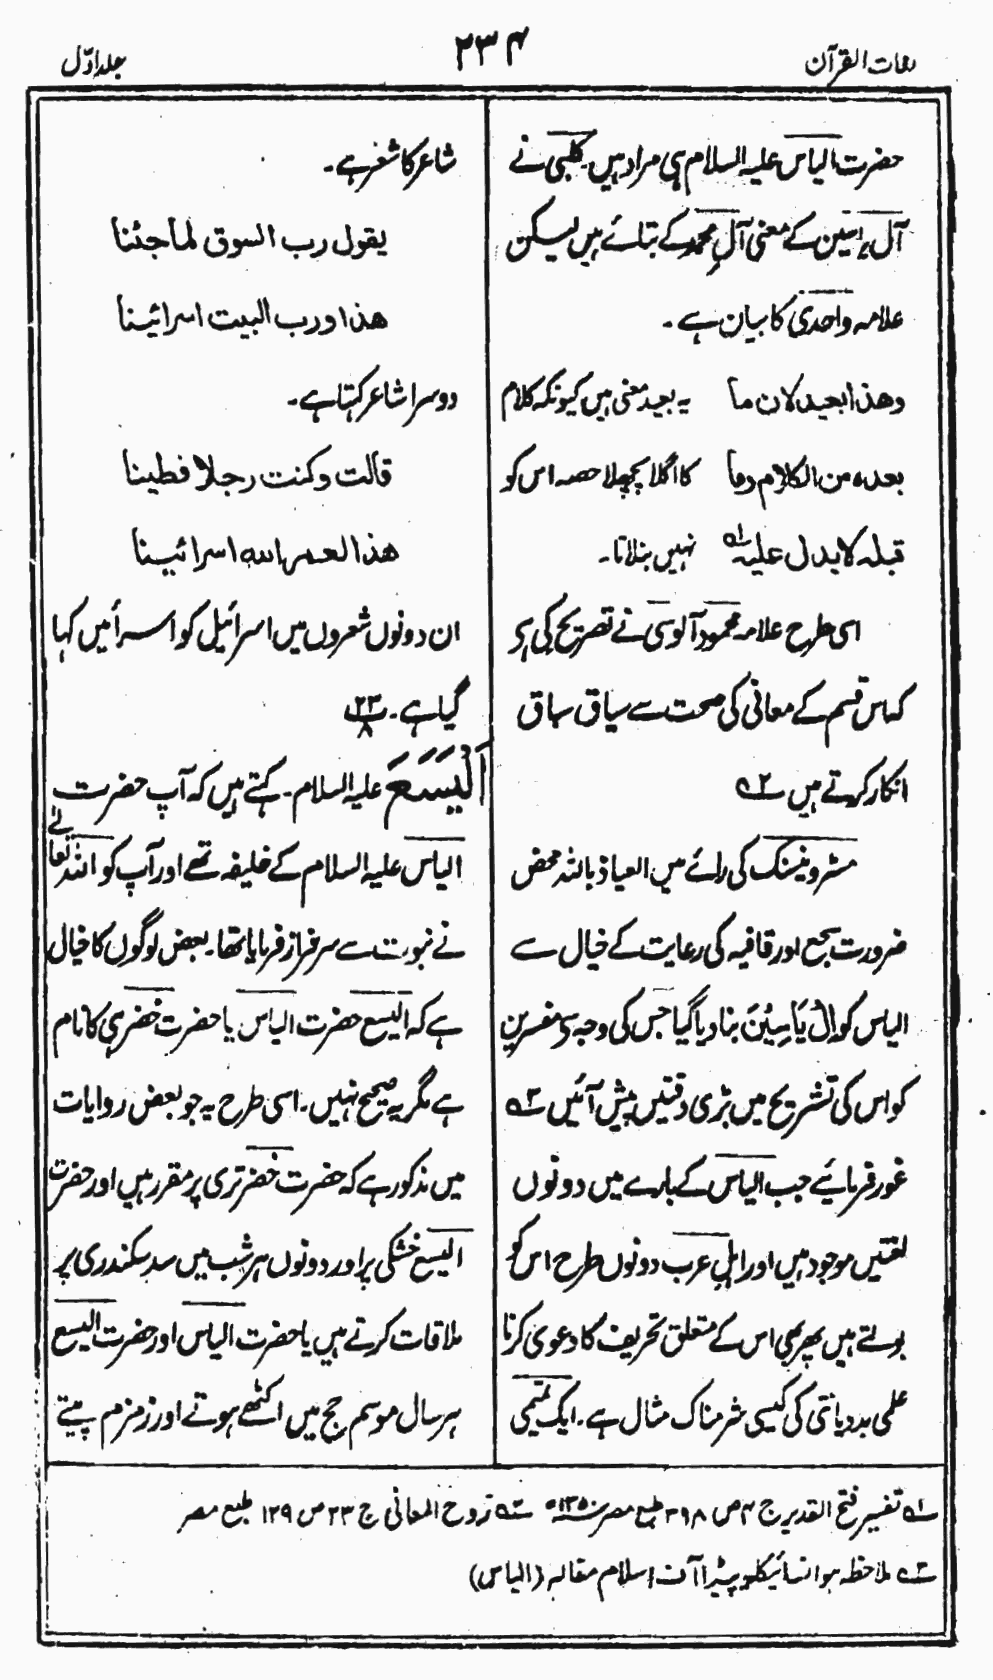 لغات القرآن
۲۳۴
جلد اوّل
حضرت الیاس علیہ السلام ہی مراد ہیں۔ کلبی نے
آل یاسین کے معنی آلِ محمد کے بتائے ہیں لیکن
علامہ واحدی کا بیان ہے۔
وهذا بعيد لان ما یہ بعید معنی ہیں کیونکہ کلام
بعده من الكلام وما کا اگلا پچھلا حصہ اس کو
قبله لا يدل عليه ۱ نہیں بتلاتا۔
اسی طرح علامہ محمود آلوسی نے تصریح کی ہے
کہ اس قسم کے معانی کی صحت سے سیاق سباق
انکار کرتے ہیں ۲
مسٹر ونینک کی رائے میں العیاذ باللہ محض
ضرورت سجع اور قافیہ کی رعایت کے خیال سے
الیاس کو اِلْ يَاسِيْنَ بنا دیا گیا جس کی وجہ سے مفسرین
کو اس کی تشریح میں بڑی دقتیں پیش آئیں ۳
غور فرمائیے جب الیاس کے بارے میں دونوں
لغتیں موجود ہیں اور اہلِ عرب دونوں طرح اس کو
بولتے ہیں پھر بھی اس کے متعلق تحریف کا دعوی کرنا
علمی بددیانتی کی کیسی شرمناک مثال ہے۔ ایک تمیمی
شاعر کا شعر ہے۔
يقول رب السوق لما جئنا
هذا ورب البيت اسرائينا
دوسرا شاعر کہتا ہے۔
قالت وكنت رجلا فطينا
هذا لعمر الله اسرائينا
ان دونوں شعروں میں اسرائیل کو اسرائین کہا
گیا ہے۔ ۲۳ ۸
اَلْیَسَعَ علیہ السلام۔ کہتے ہیں کہ آپ حضرت
الیاس علیہ السلام کے خلیفہ تھے اور آپ کو اللہ تعالٰے
نے نبوت سے سرفراز فرمایا تھا۔ بعض لوگوں کا خیال
ہے کہ الیسع حضرت الیاس یا حضرت خضر ہی کا نام
ہے مگر یہ صحیح نہیں۔ اسی طرح یہ جو بعض روایات
میں مذکور ہے کہ حضرت خضر تری پر مقرر ہیں اور حضرت
الیسع خشکی پر اور دونوں ہر شب میں سد سکندری پر
ملاقات کرتے ہیں یا حضرت الیاس اور حضرت الیسع
ہر سال موسم حج میں اکٹھے ہوتے اور زمزم پیتے
۱ تفسیر فتح القدیر ج ۴ ص ۳۹۸ طبع مصر ۱۳۵۰ھ ۲ روح المعانی ج ۲۳ ص ۱۲۹ طبع مصر
۳ ملاحظہ ہو انسائیکلوپیڈیا آف اسلام مقالہ (الیاس)